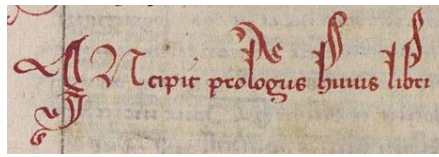 Incipit prologus huius libri